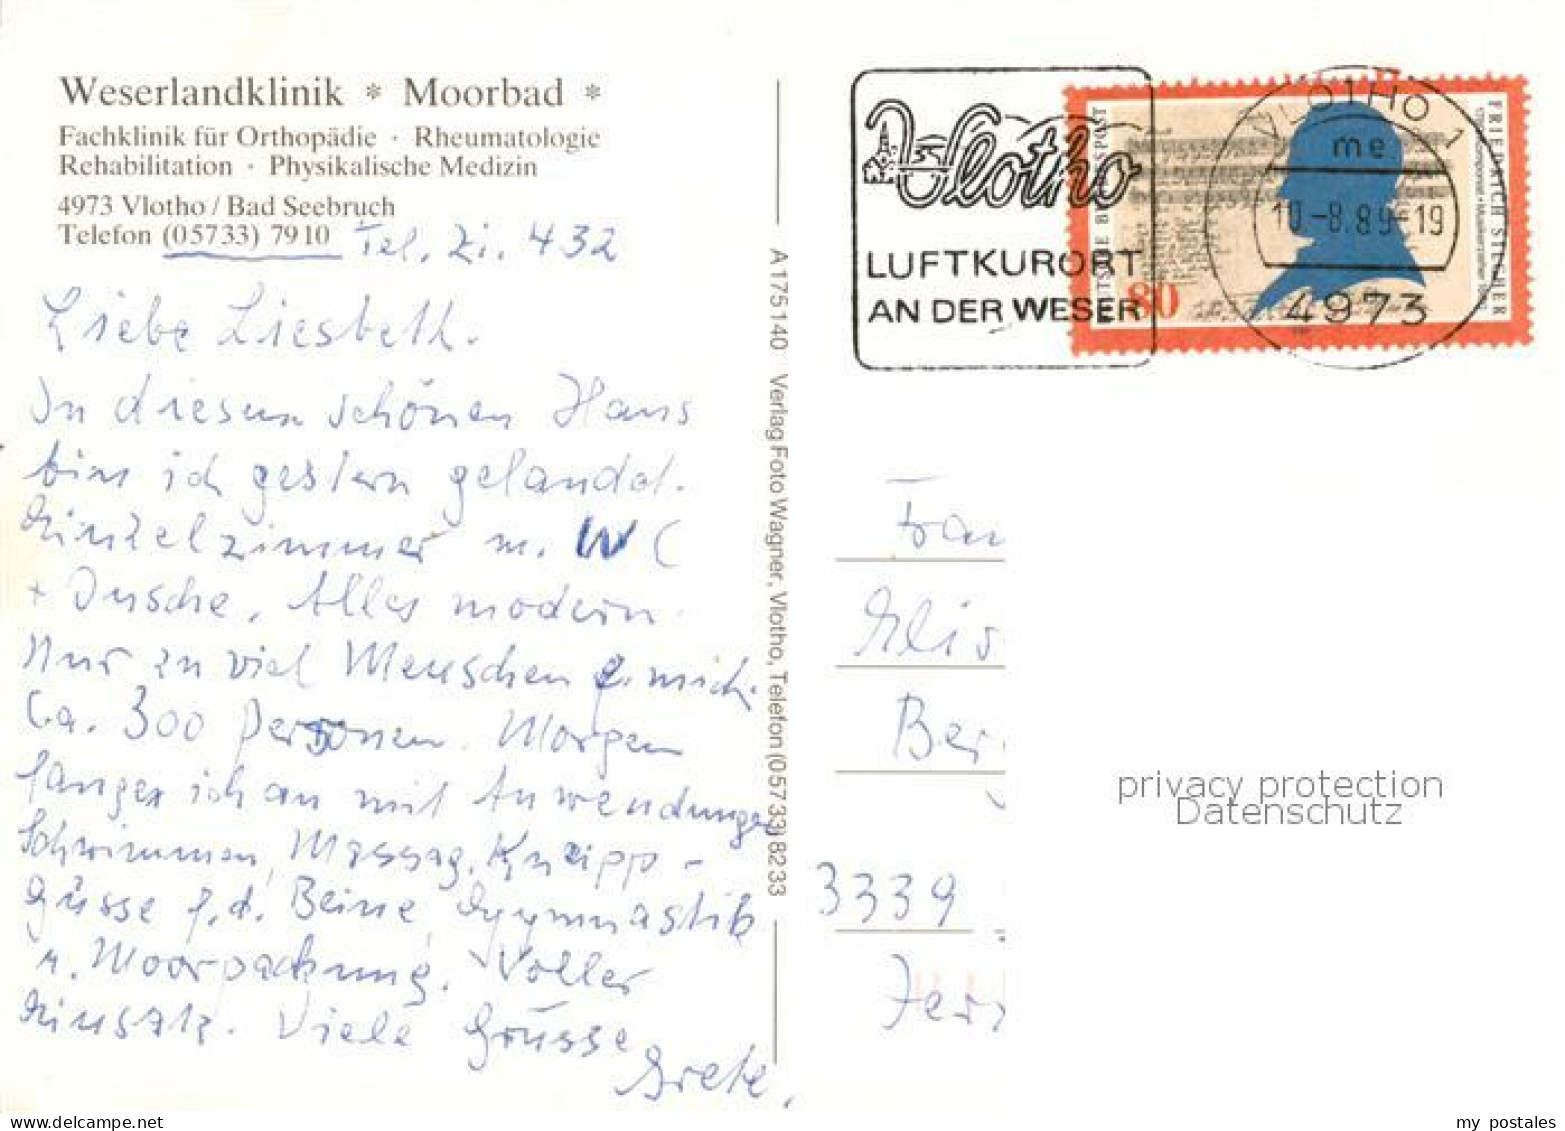 Weserlandklinik * Moorbad *
Fachklinik für Orthopädie · Rheumatologie
Rehabilitation · Physikalische Medizin
4973 Vlotho / Bad Seebruch
Telefon (05733) 7910 Tel. Zi. 432
Liebe Liesbeth.
In diesem schönen Haus
bin ich gestern gelandet.
Einzelzimmer m. WC
+ Dusche. Alles modern.
Nur zu viel Menschen f. mich.
Ca. 300 Personen. Morgen
fange ich an mit Anwendungen
Schwimmen, Massag, Kneipp-
güsse f. d. Beine, Gymnastik
u. Moorpackung. Voller
Einsatz. Viele Grüsse
Grete.
A 175140 Verlag Foto Wagner, Vlotho, Telefon (05733) 8233
Vlotho
LUFTKURORT
AN DER WESER
VLOTHO 1
me
10.-8.89-19
4973
80
FRIEDRICH SILCHER
Frau
Elis
Ber
3339
Jer
privacy protection
Datenschutz
my postales